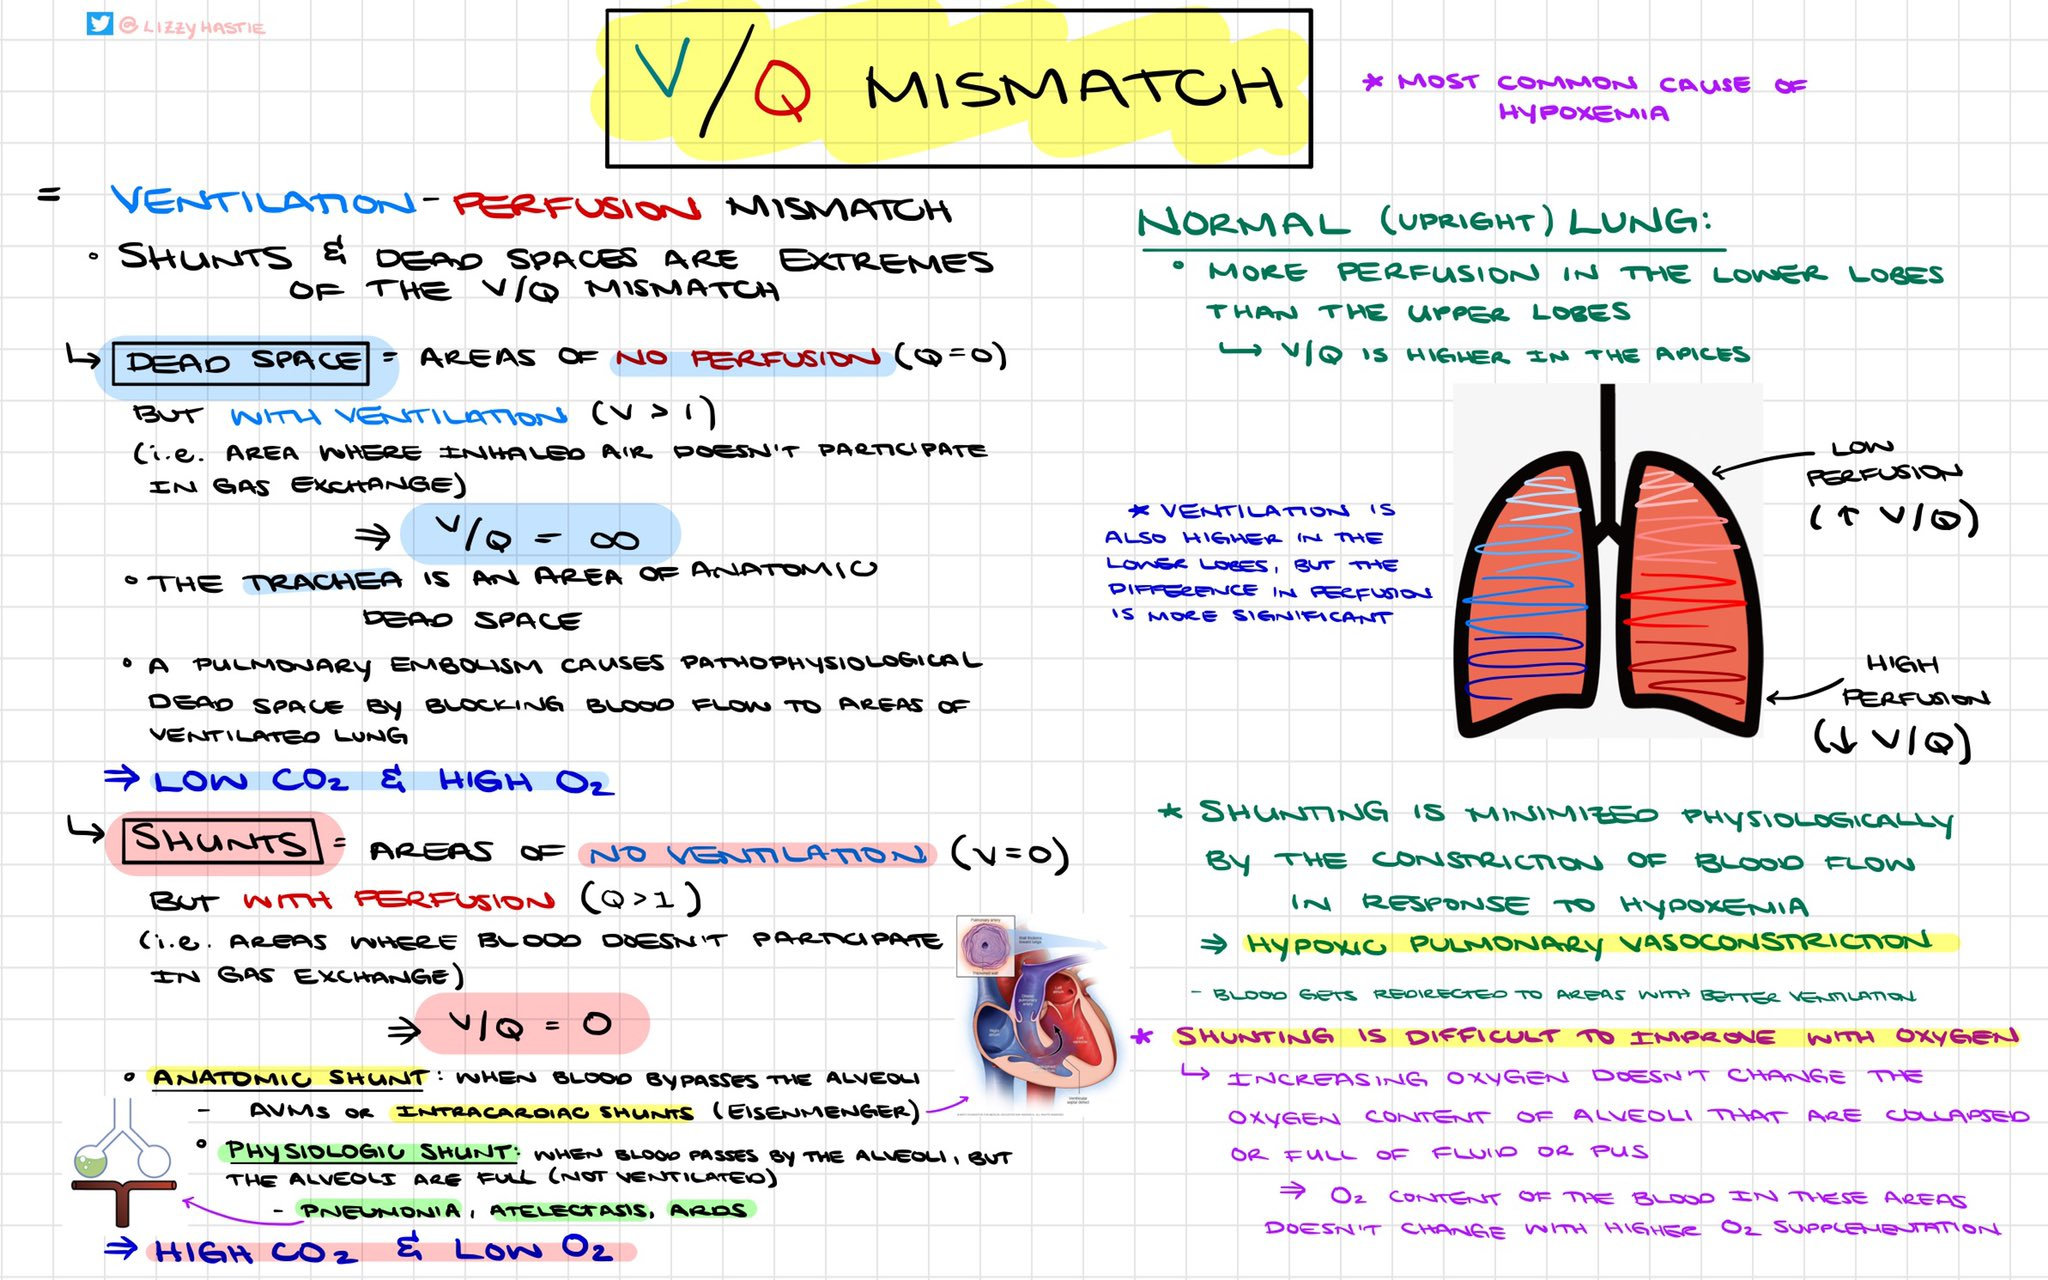 @LIZZYHASTIE
V/Q MISMATCH
* MOST COMMON CAUSE OF
HYPOXEMIA
= VENTILATION-PERFUSION MISMATCH
• SHUNTS & DEAD SPACES ARE EXTREMES
OF THE V/Q MISMATCH
↳ DEAD SPACE = AREAS OF NO PERFUSION (Q=0)
BUT WITH VENTILATION (V > 1)
(i.e. AREA WHERE INHALED AIR DOESN'T PARTICIPATE
IN GAS EXCHANGE)
⇒ V/Q = ∞
• THE TRACHEA IS AN AREA OF ANATOMIC
DEAD SPACE
• A PULMONARY EMBOLISM CAUSES PATHOPHYSIOLOGICAL
DEAD SPACE BY BLOCKING BLOOD FLOW TO AREAS OF
VENTILATED LUNG
⇒ LOW CO2 & HIGH O2
↳ SHUNTS = AREAS OF NO VENTILATION (V=0)
BUT WITH PERFUSION (Q>1)
(i.e. AREAS WHERE BLOOD DOESN'T PARTICIPATE
IN GAS EXCHANGE)
⇒ V/Q = 0
• ANATOMIC SHUNT: WHEN BLOOD BYPASSES THE ALVEOLI
- AVMS OR INTRACARDIAC SHUNTS (EISENMENGER)
• PHYSIOLOGIC SHUNT: WHEN BLOOD PASSES BY THE ALVEOLI, BUT
THE ALVEOLI ARE FULL (NOT VENTILATED)
- PNEUMONIA, ATELECTASIS, ARDS
⇒ HIGH CO2 & LOW O2
Pulmonary artery
NORMAL (UPRIGHT) LUNG:
• MORE PERFUSION IN THE LOWER LOBES
THAN THE UPPER LOBES
↳ V/Q IS HIGHER IN THE APICES
LOW
PERFUSION
(↑ V/Q)
* VENTILATION IS
ALSO HIGHER IN THE
LOWER LOBES, BUT THE
DIFFERENCE IN PERFUSION
IS MORE SIGNIFICANT
HIGH
PERFUSION
(↓ V/Q)
* SHUNTING IS MINIMIZED PHYSIOLOGICALLY
BY THE CONSTRICTION OF BLOOD FLOW
IN RESPONSE TO HYPOXEMIA
⇒ HYPOXIC PULMONARY VASOCONSTRICTION
- BLOOD GETS REDIRECTED TO AREAS WITH BETTER VENTILATION
* SHUNTING IS DIFFICULT TO IMPROVE WITH OXYGEN
↳ INCREASING OXYGEN DOESN'T CHANGE THE
OXYGEN CONTENT OF ALVEOLI THAT ARE COLLAPSED
OR FULL OF FLUID OR PUS
⇒ O2 CONTENT OF THE BLOOD IN THESE AREAS
DOESN'T CHANGE WITH HIGHER O2 SUPPLEMENTATION